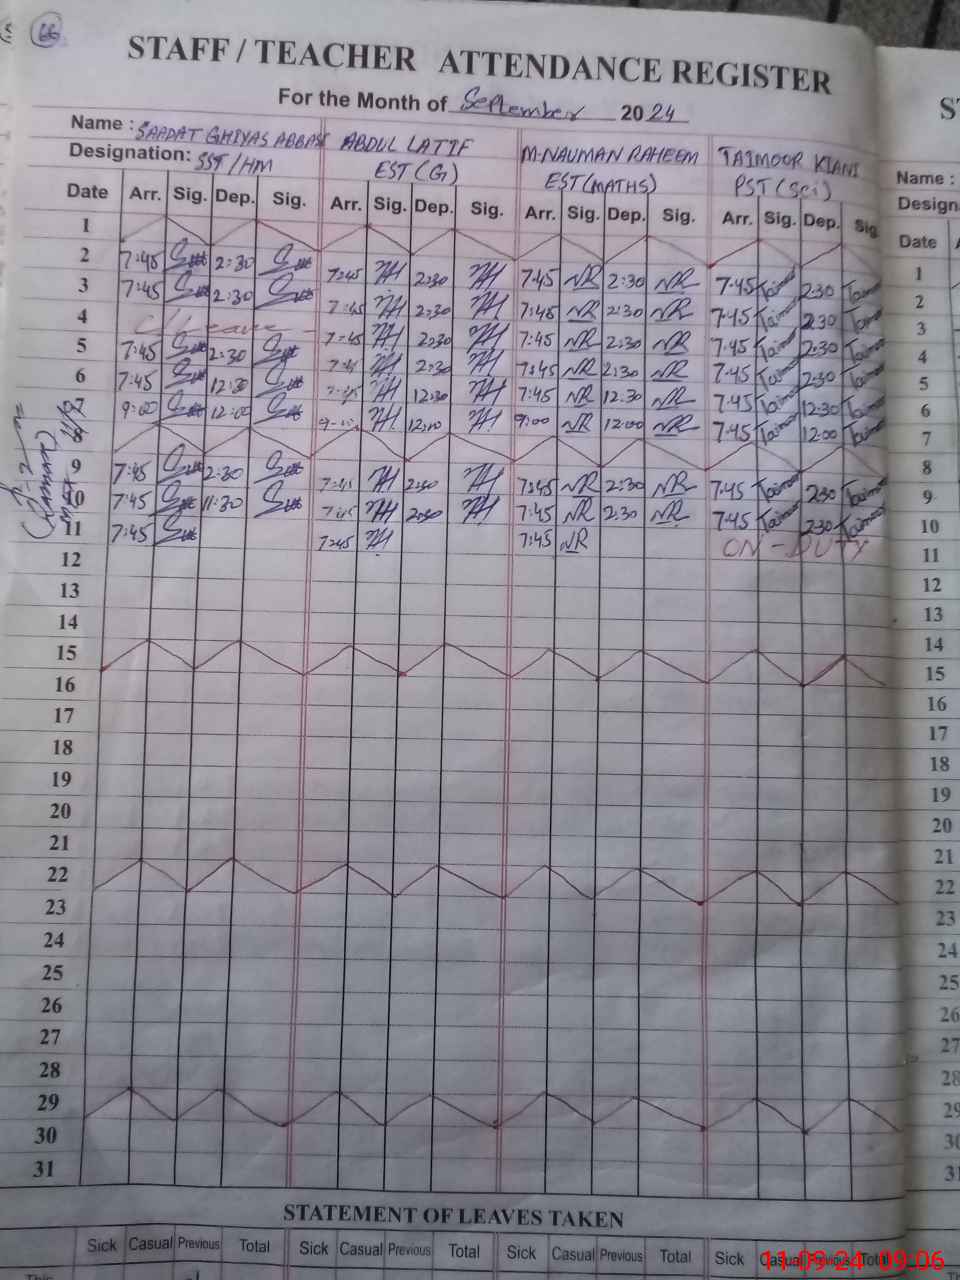 66
STAFF / TEACHER ATTENDANCE REGISTER
For the Month of September 2024
Name : SAADAT GHIYAS ABBASI ABDUL LATIF M.NAUMAN RAHEEM TAIMOOR KIANI
Designation: SST/HM EST(G) EST(MATHS) PST(Sci)
Date Arr. Sig. Dep. Sig. Arr. Sig. Dep. Sig. Arr. Sig. Dep. Sig. Arr. Sig. Dep. Sig.
1
2 7:45 2:30 7:45 2:30 7:45 NR 2:30 NR 7:45 Taimoor 2:30 Taimoor
3 7:45 2:30 7:45 2:30 7:45 NR 2:30 NR 7:45 Taimoor 2:30 Taimoor
4 C/Leave 7:45 2:30 7:45 NR 2:30 NR 7:45 Taimoor 2:30 Taimoor
5 7:45 2:30 7:45 2:30 7:45 NR 2:30 NR 7:45 Taimoor 2:30 Taimoor
6 7:45 12:30 7:45 12:30 7:45 NR 12:30 NR 7:45 Taimoor 12:30 Taimoor
7 9:00 12:00 12:00 9:00 NR 12:00 NR 7:45 Taimoor 12:00 Taimoor
9 7:45 2:30 7:45 2:30 7:45 NR 2:30 NR 7:45 Taimoor 2:30 Taimoor
10 7:45 11:30 7:45 2:30 7:45 NR 2:30 NR 7:45 Taimoor 2:30 Taimoor
11 7:45 7:45 7:45 NR ON-DUTY
12
13
14
15
16
17
18
19
20
21
22
23
24
25
26
27
28
29
30
31
STATEMENT OF LEAVES TAKEN
Sick Casual Previous Total Sick Casual Previous Total Sick Casual Previous Total Sick Casual Previous Total
This
Name :
Date
1
2
3
4
5
6
7
8
9
10
11
12
13
14
15
16
17
18
19
20
21
22
23
24
25
26
27
28
29
30
11-09-24 09:06